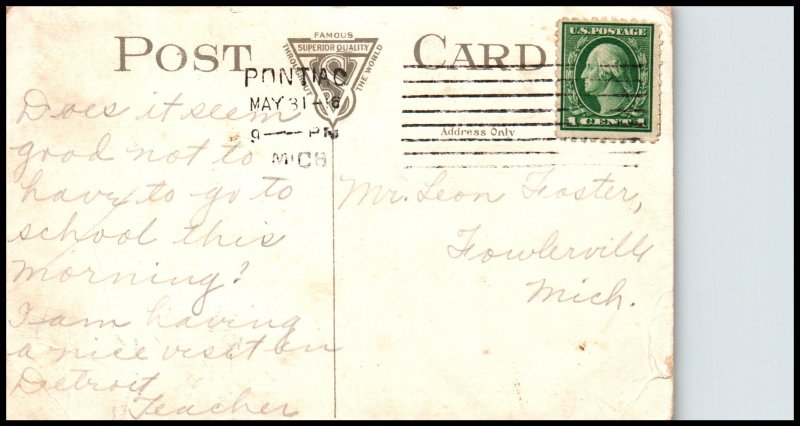 POST CARD
FAMOUS
SUPERIOR QUALITY
THROUGHOUT THE WORLD
S
U.S. POSTAGE
1 CENT 1
PONTIAC
MAY 31-16
9 — PM
MICH
Address Only
Does it seem
good not to
havy to go to
school this
morning?
I am having
a nice visit in
Detroit
Teacher
Mr. Leon Foster,
Fowlerville
Mich.